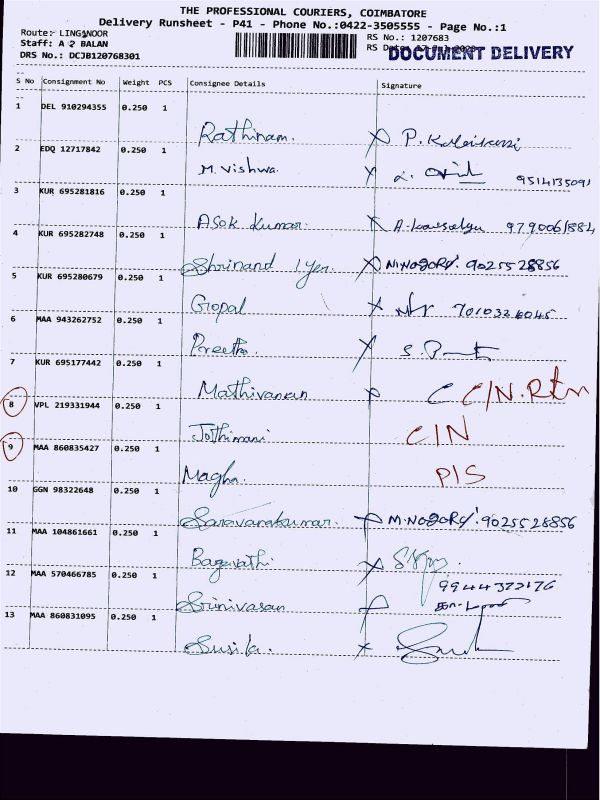 THE PROFESSIONAL COURIERS, COIMBATORE
Delivery Runsheet - P41 - Phone No.:0422-3505555 - Page No.:1
Route:- LINGANOOR
RS No.: 1207683
Staff: A 2 BALAN
RS Date:
DOCUMENT DELIVERY
DRS No.: DCJB120768301
S No Consignment No Weight PCS Consignee Details Signature
1 DEL 910294355 0.250 1
Rathinam. P.
2 EDQ 12717842 0.250 1
M. Vishwa. 9514135091
3 KUR 695281816 0.250 1
Asok kumar. A.
4 KUR 695282748 0.250 1
Shrinand Iyer. 9025528856
5 KUR 695280679 0.250 1
Gopal
6 MAA 943262752 0.250 1
Preetha. S.
7 KUR 695177442 0.250 1
Mathivanan C/N. Rtn
8 VPL 219331944 0.250 1
Jothimani C/N
9 MAA 860835427 0.250 1
Magha. P/S
10 GGN 98322648 0.250 1
Saravanakumar. 9025528856
11 MAA 104861661 0.250 1
Bagavathi
12 MAA 570466785 0.250 1
Srinivasan
13 MAA 860831095 0.250 1
Susila.